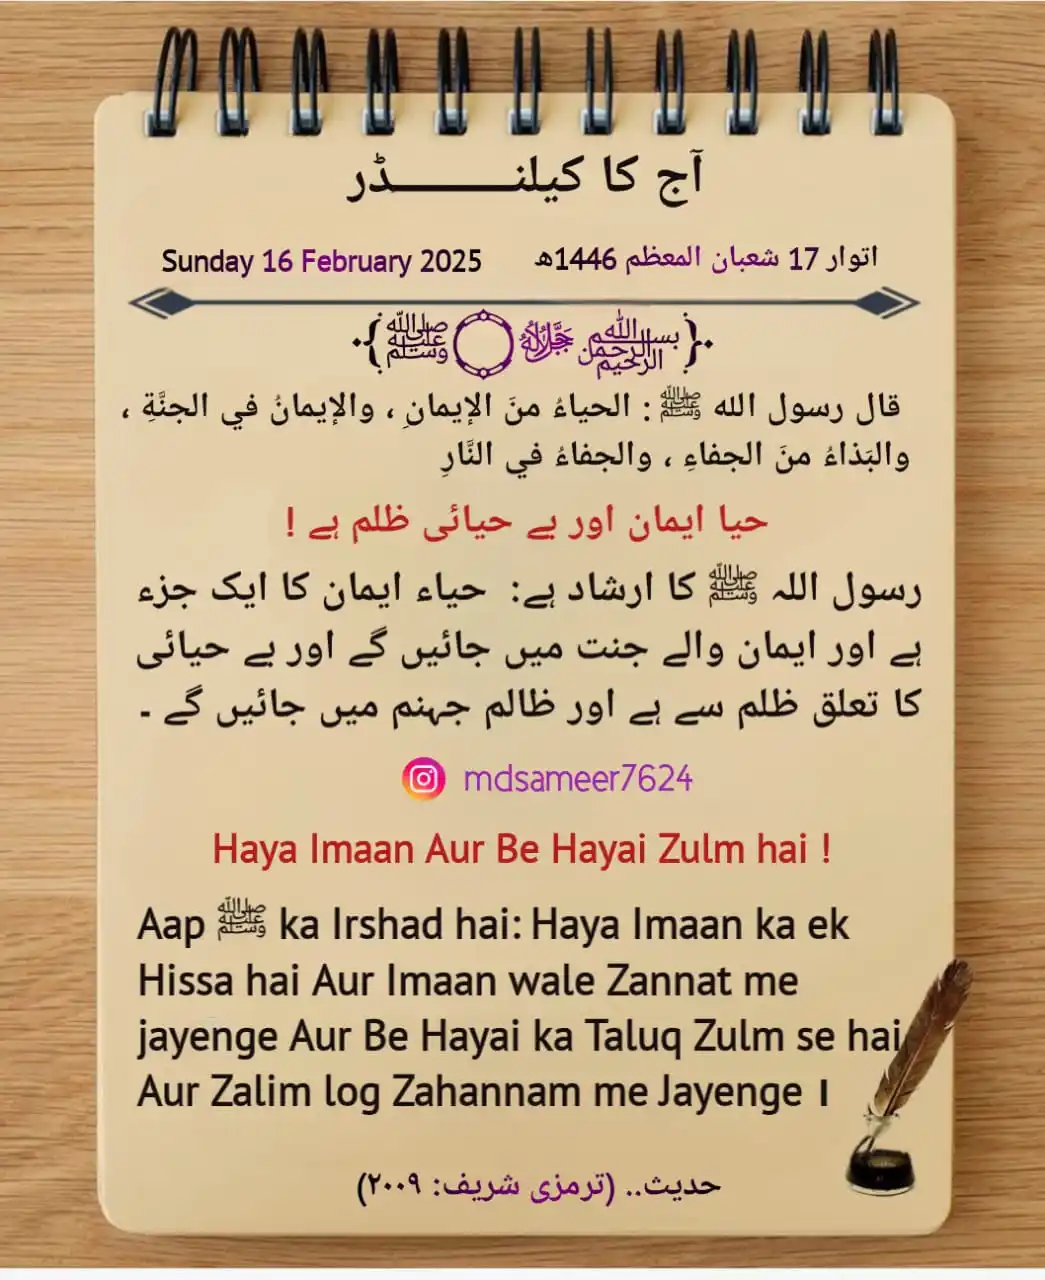 آج کا کیلنــــــــــڈر
اتوار 17 شعبان المعظم 1446ھ
Sunday 16 February 2025
﷽ ﷻ ﷺ
قال رسول الله ﷺ : الحياءُ منَ الإيمانِ ، والإيمانُ في الجنَّةِ ،
والبَذاءُ منَ الجفاءِ ، والجفاءُ في النَّارِ
حیا ایمان اور بے حیائی ظلم ہے !
رسول اللہ ﷺ کا ارشاد ہے: حیاء ایمان کا ایک جزء
ہے اور ایمان والے جنت میں جائیں گے اور بے حیائی
کا تعلق ظلم سے ہے اور ظالم جہنم میں جائیں گے ۔
mdsameer7624
Haya Imaan Aur Be Hayai Zulm hai !
Aap ﷺ ka Irshad hai: Haya Imaan ka ek
Hissa hai Aur Imaan wale Zannat me
jayenge Aur Be Hayai ka Taluq Zulm se hai
Aur Zalim log Zahannam me Jayenge ।
حدیث.. (ترمزی شریف: ۲۰۰۹)